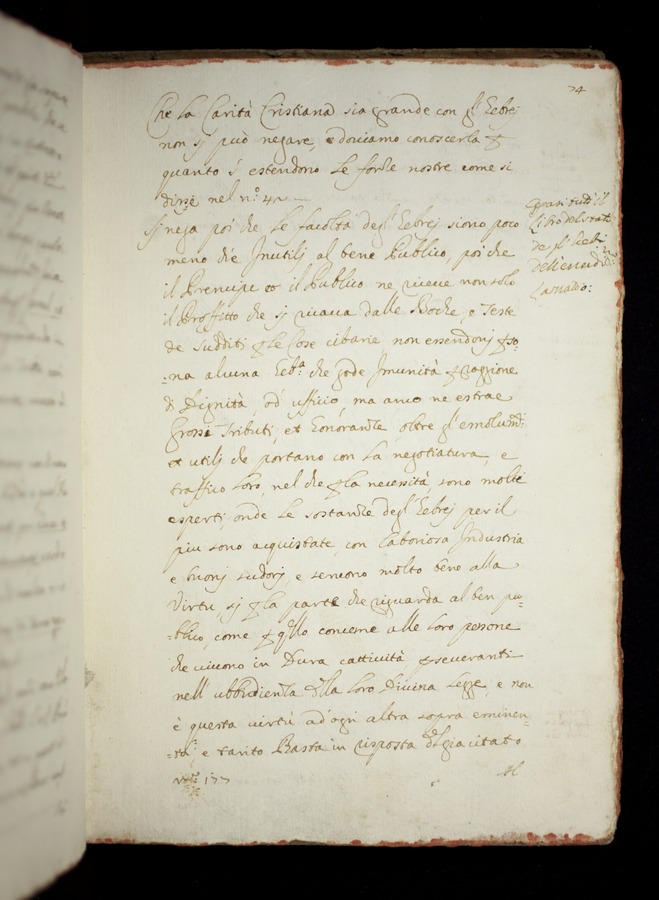 74
Che la Carità Cristiana sia grande con gl' Eebrej
non si può negare, e doviamo conoscerla
quanto s' estendono le forze nostre come si
disse nel n.º
Si nega poi che le facoltà degl' Eebrej siono poco
meno che Inutilj al bene Publico, poi che
il Prencipe et il Publico ne riceve non solo
il Proffitto che si ricava dalle Boche, e Teste
de sudditi le Cose cibarie non essendovj
-na alcuna Eeb.ª che gode Imunità Caggione
di Dignità, od' ufficio, ma anco ne estrae
grossi Tributi, et Eonoranze oltre gl'
et utilj che portano con la negotiatura, e
traffico loro, nel che la necessità sono molte
esperti, onde le sostanze degl' Eebrej per il
piu sono acquistate con laboriosa Industria
e buonj sudorj, e servono molto bene alla
Virtu, sj la parte che riguarda al ben pu-
-blico, come concerne alle loro persone
che vivono in Dura cattività
nell' ubbidienza loro Divina legge, e non
è questa virtù ad' ogni altra sopra eminen-
-te, e tanto Basta in risposta già citato
177
Al
il
Libro
de